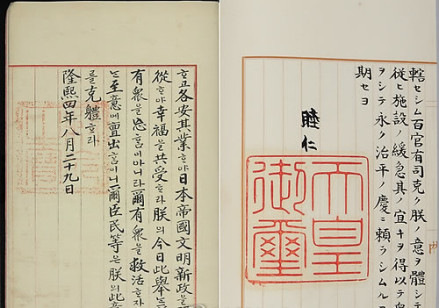 轄セシム百官有司克ク朕ノ意ヲ體シ
從ヒ施設ノ緩急其ノ宜キヲ得以テ衆
ヲシテ永ク治平ノ慶ニ賴ラシムル
期セヨ
睦仁
天皇
御璽
ᄒᆞ고各安其業ᄒᆞ야日本帝國文明新政을
從ᄒᆞ야幸福을共受ᄒᆞ라朕의今日此擧
有衆을忘홈이아니라爾有衆을救活ᄒᆞ자
는至意에亶出홈이니爾臣民等은朕의此
를克體ᄒᆞ라
隆熙四年八月二十九日